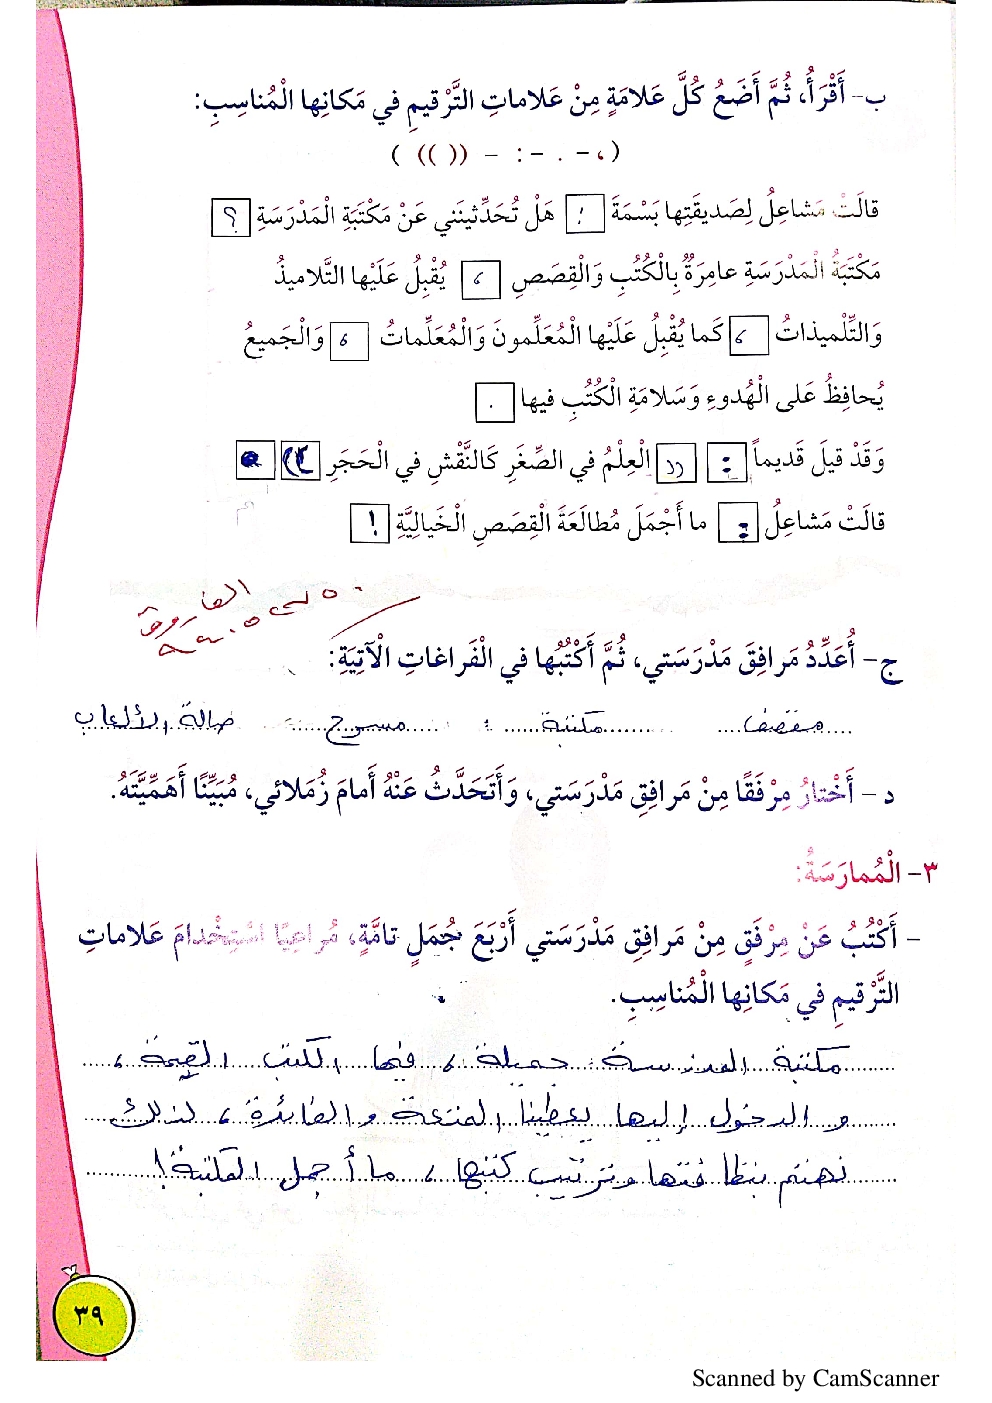 ب- أَقْرَأُ، ثُمَّ أَضَعُ كُلَّ عَلامَةٍ مِنْ عَلاماتِ التَّرْقيمِ في مَكانِها الْمُناسِبِ:
(،- . - : - (( )) )
قالَتْ مَشاعِلُ لِصَديقَتِها بَسْمَةَ : هَلْ تُحَدِّثينَني عَنْ مَكْتَبَةِ الْمَدْرَسَةِ ؟
مَكْتَبَةُ الْمَدْرَسَةِ عامِرَةٌ بِالْكُتُبِ وَالْقِصَصِ ، يُقْبِلُ عَلَيْها التَّلاميذُ
وَالتِّلْميذاتُ ، كَما يُقْبِلُ عَلَيْها الْمُعَلِّمونَ وَالْمُعَلِّماتُ ، وَالْجَميعُ
يُحافِظُ عَلى الْهُدوءِ وَسَلامَةِ الْكُتُبِ فيها .
وَقَدْ قيلَ قَديماً : (( الْعِلْمُ في الصِّغَرِ كَالنَّقْشِ في الْحَجَرِ )) .
قالَتْ مَشاعِلُ : ما أَجْمَلَ مُطالَعَةَ الْقِصَصِ الْخَيالِيَّةِ !
ج- أُعَدِّدُ مَرافِقَ مَدْرَسَتي، ثُمَّ أَكْتُبُها في الْفَراغاتِ الْآتِيَةِ:
مقصف مكتبة مسرح صالة الألعاب
د- أَخْتارُ مِرْفَقًا مِنْ مَرافِقِ مَدْرَسَتي، وَأَتَحَدَّثُ عَنْهُ أَمامَ زُمَلائي، مُبَيِّنًا أَهَمِّيَّتَهُ.
٣- الْمُمارَسَةُ:
- أَكْتُبُ عَنْ مِرْفَقٍ مِنْ مَرافِقِ مَدْرَسَتي أَرْبَعَ جُمَلٍ تامَّةٍ، مُراعِيًا اسْتِخْدامَ عَلاماتِ
التَّرْقيمِ في مَكانِها الْمُناسِبِ.
مكتبة المدرسة جميلة ، فيها الكتب القيمة ،
و الدخول إليها يعطينا المتعة و الفائدة ، لذلك
نهتم بنظافتها وترتيب كتبها ، ما أجمل المكتبة !
٣٩
Scanned by CamScanner